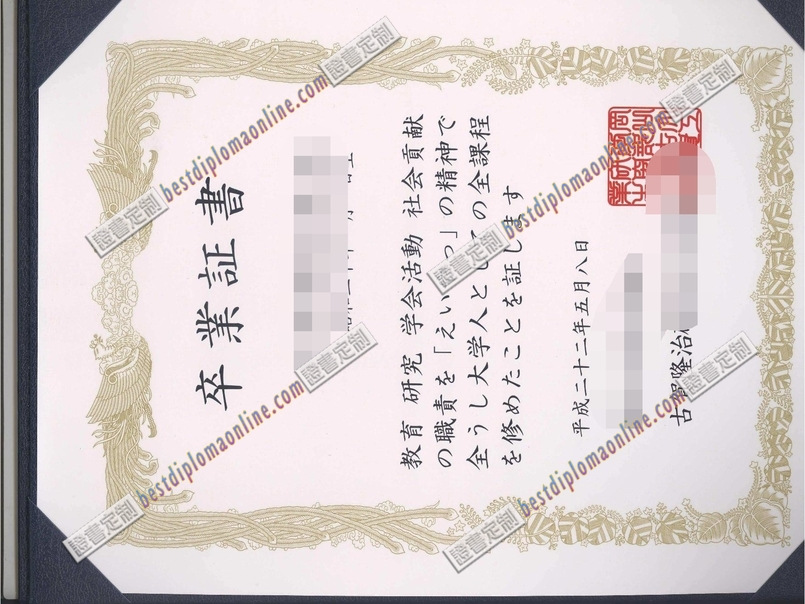 卒業証書
教育 研究 学会活動 社会貢献
の職責を「えい
っ」の精神で
全うし大学人として
の全課程
を修めたことを証します
平成二十二年五月八日
古賀隆治
證書定制
bestdiplomaonline.com
證書定制
bestdiplomaonline.com
證書定制
證書定制
bestdiplomaonline.com
證書定制
bestdiplomaonline.com
證書定制
證書定制